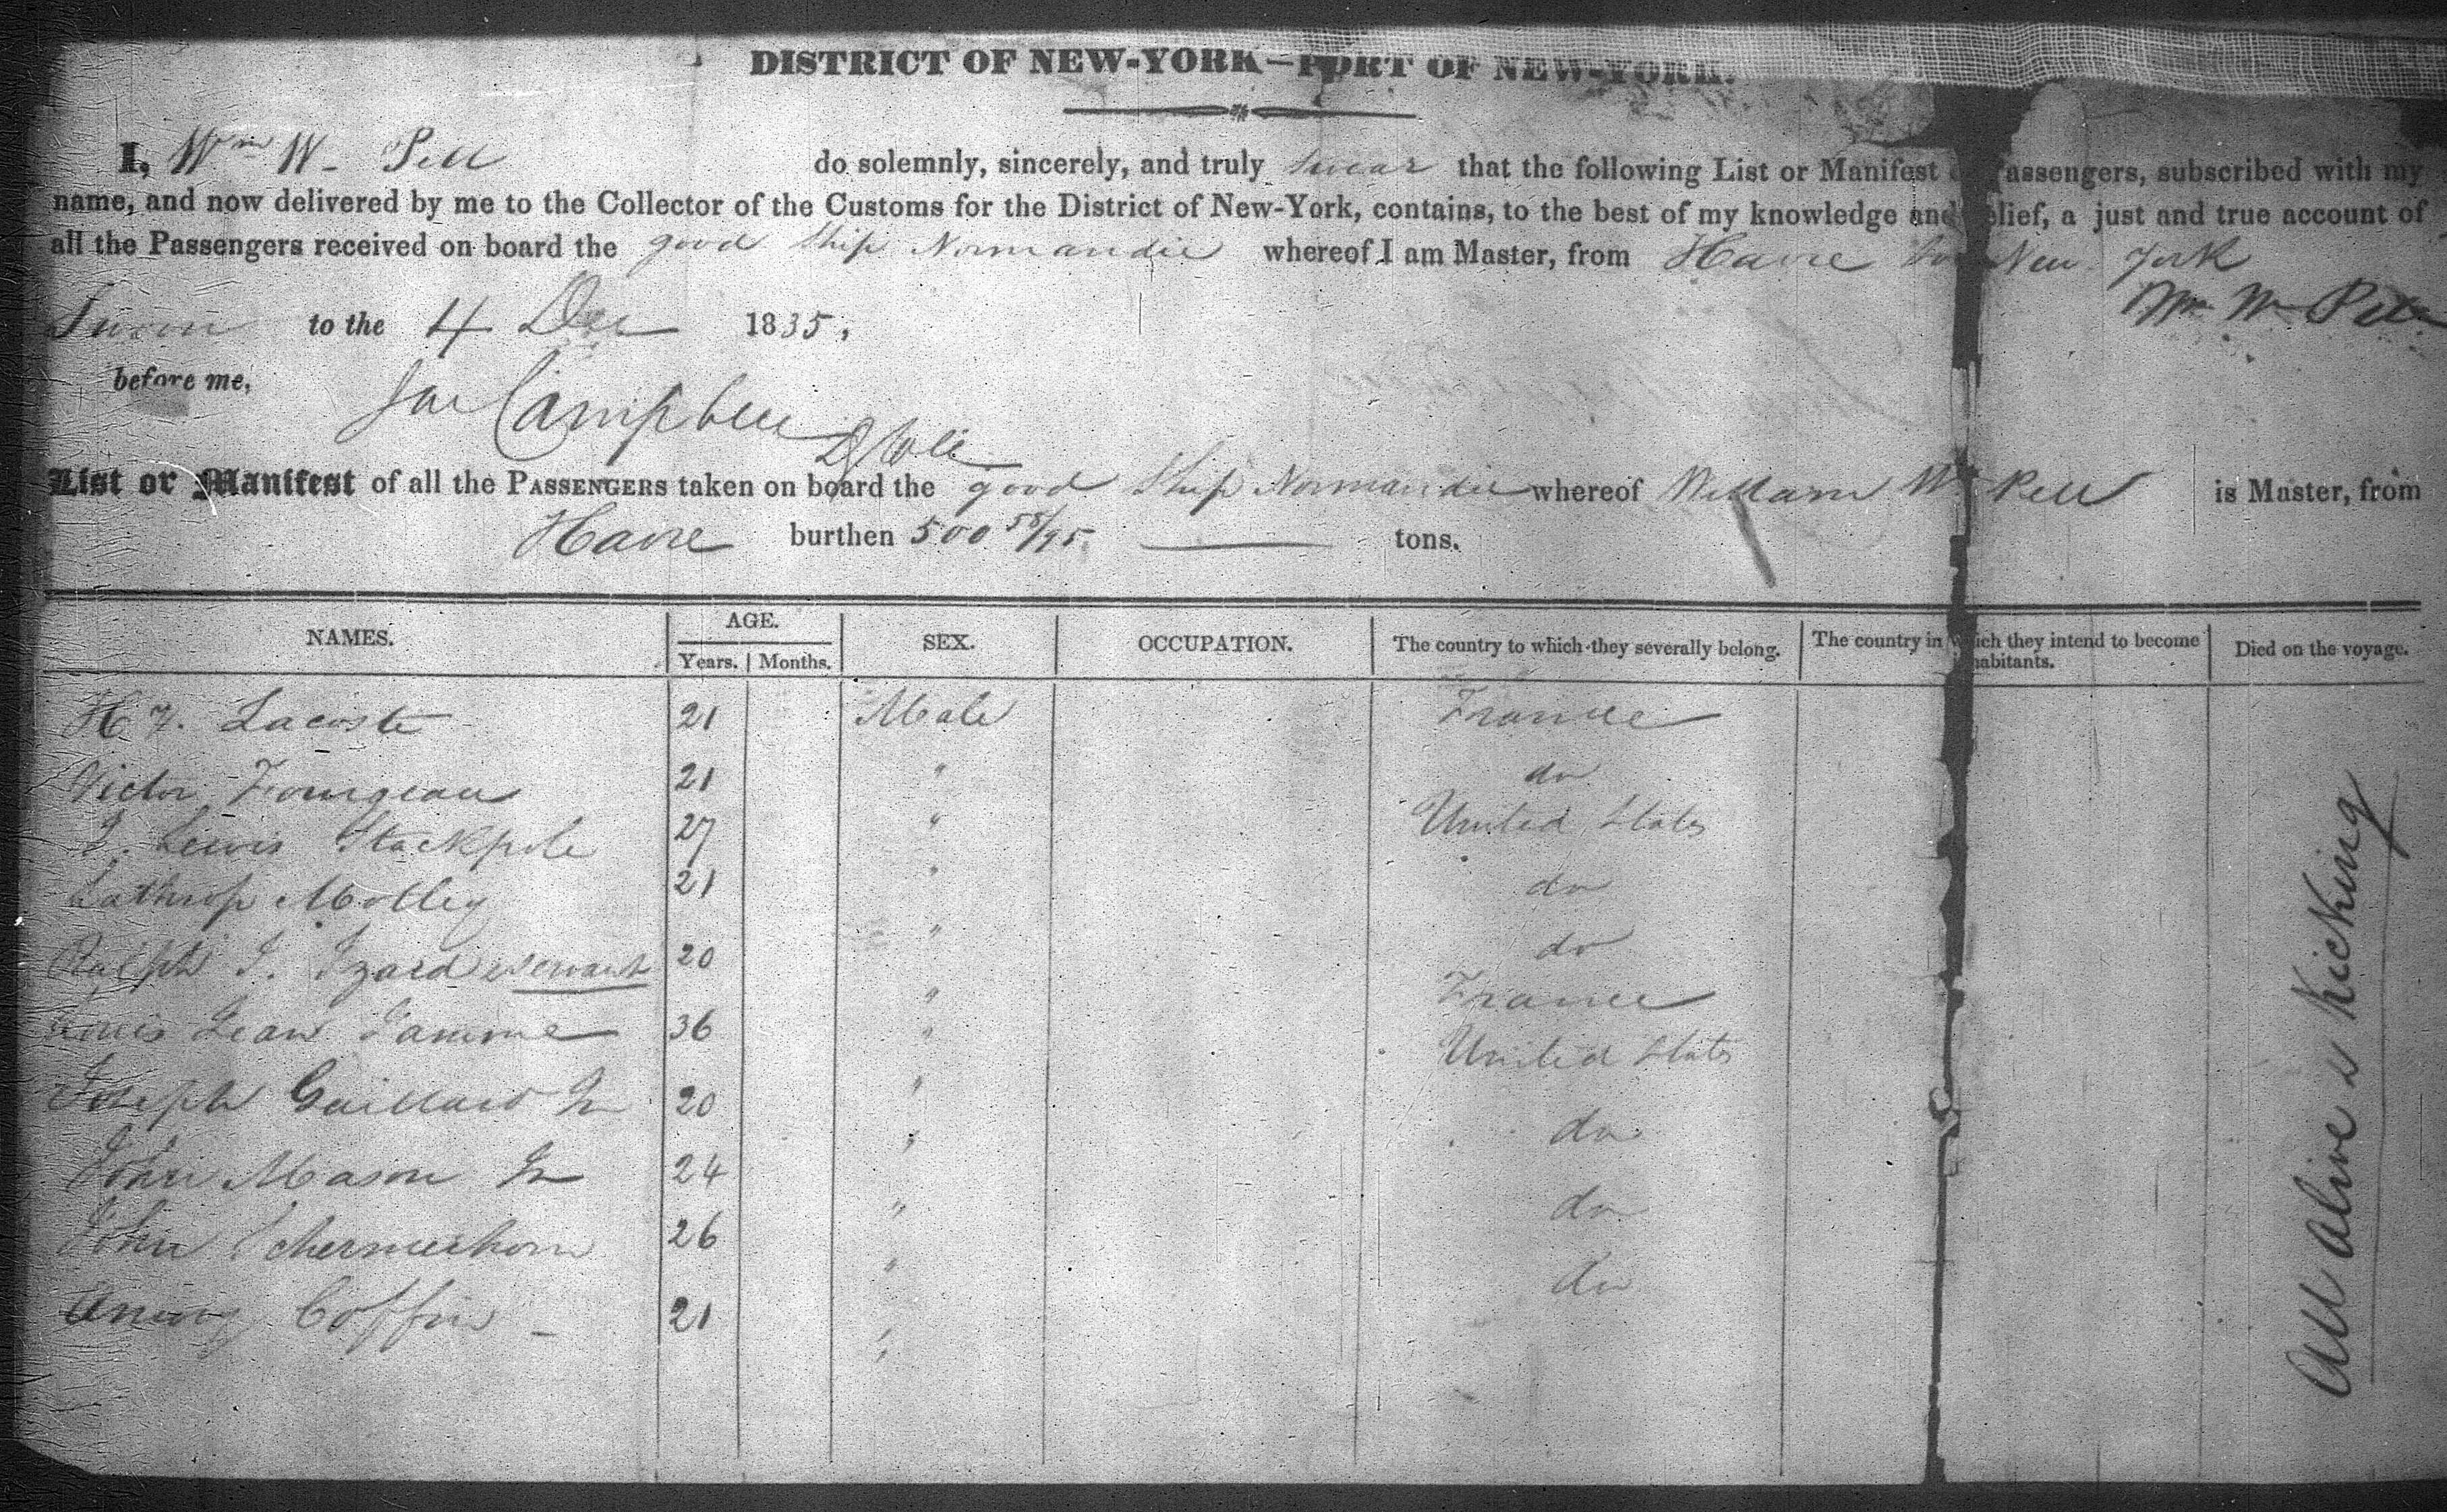 DISTRICT OF NEW-YORK—PORT OF NEW-YORK.
I, Wm W. Pell do solemnly, sincerely, and truly swear that the following List or Manifest assengers, subscribed with my
name, and now delivered by me to the Collector of the Customs for the District of New-York, contains, to the best of my knowledge and elief, a just and true account of
all the Passengers received on board the good Ship Normandie whereof I am Master, from Havre New York
Wm W Pell
Sworn to the 4 Dec 1835,
before me,
Campbell
List or Manifest of all the PASSENGERS taken on board the good Ship Normandie whereof William W Pell is Master, from
Havre burthen 500 58/95 tons.
NAMES. AGE. SEX. OCCUPATION. The country to which they severally belong. The country in which they intend to become habitants. Died on the voyage.
Years. Months.
H F. Lacoste 21 Male France
Victor Fourgeau 21 " do
J. Lewis Stackpole 27 " United States
Lathrop Motley 21 " do
Ralph I. Izard & servant 20 " do
Louis Jean 36 " France
Joseph Gaillard Jr 20 " United States
John Mason Jr 24 " do
John Schermerhorn 26 " do
Coffin 21 " do
All Alive & Kicking